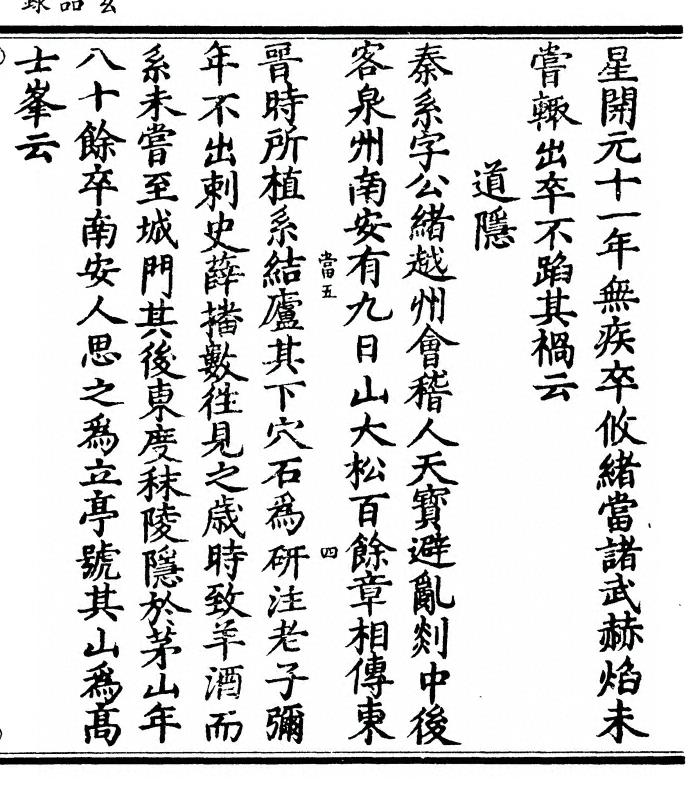 星開元十一年無疾卒攸緒當諸武赫焰未
嘗輙出卒不蹈其禍云
道隱
秦系字公緒越州會稽人天寶避亂剡中後
客泉州南安有九日山大松百餘章相傳東
晉時所植系結廬其下穴石為研注老子彌
當五
四
年不出刺史薛播數徃見之歲時致羊酒而
系未嘗至城門其後東度秣陵隱於茅山年
八十餘卒南安人思之為立亭號其山為高
士峯云